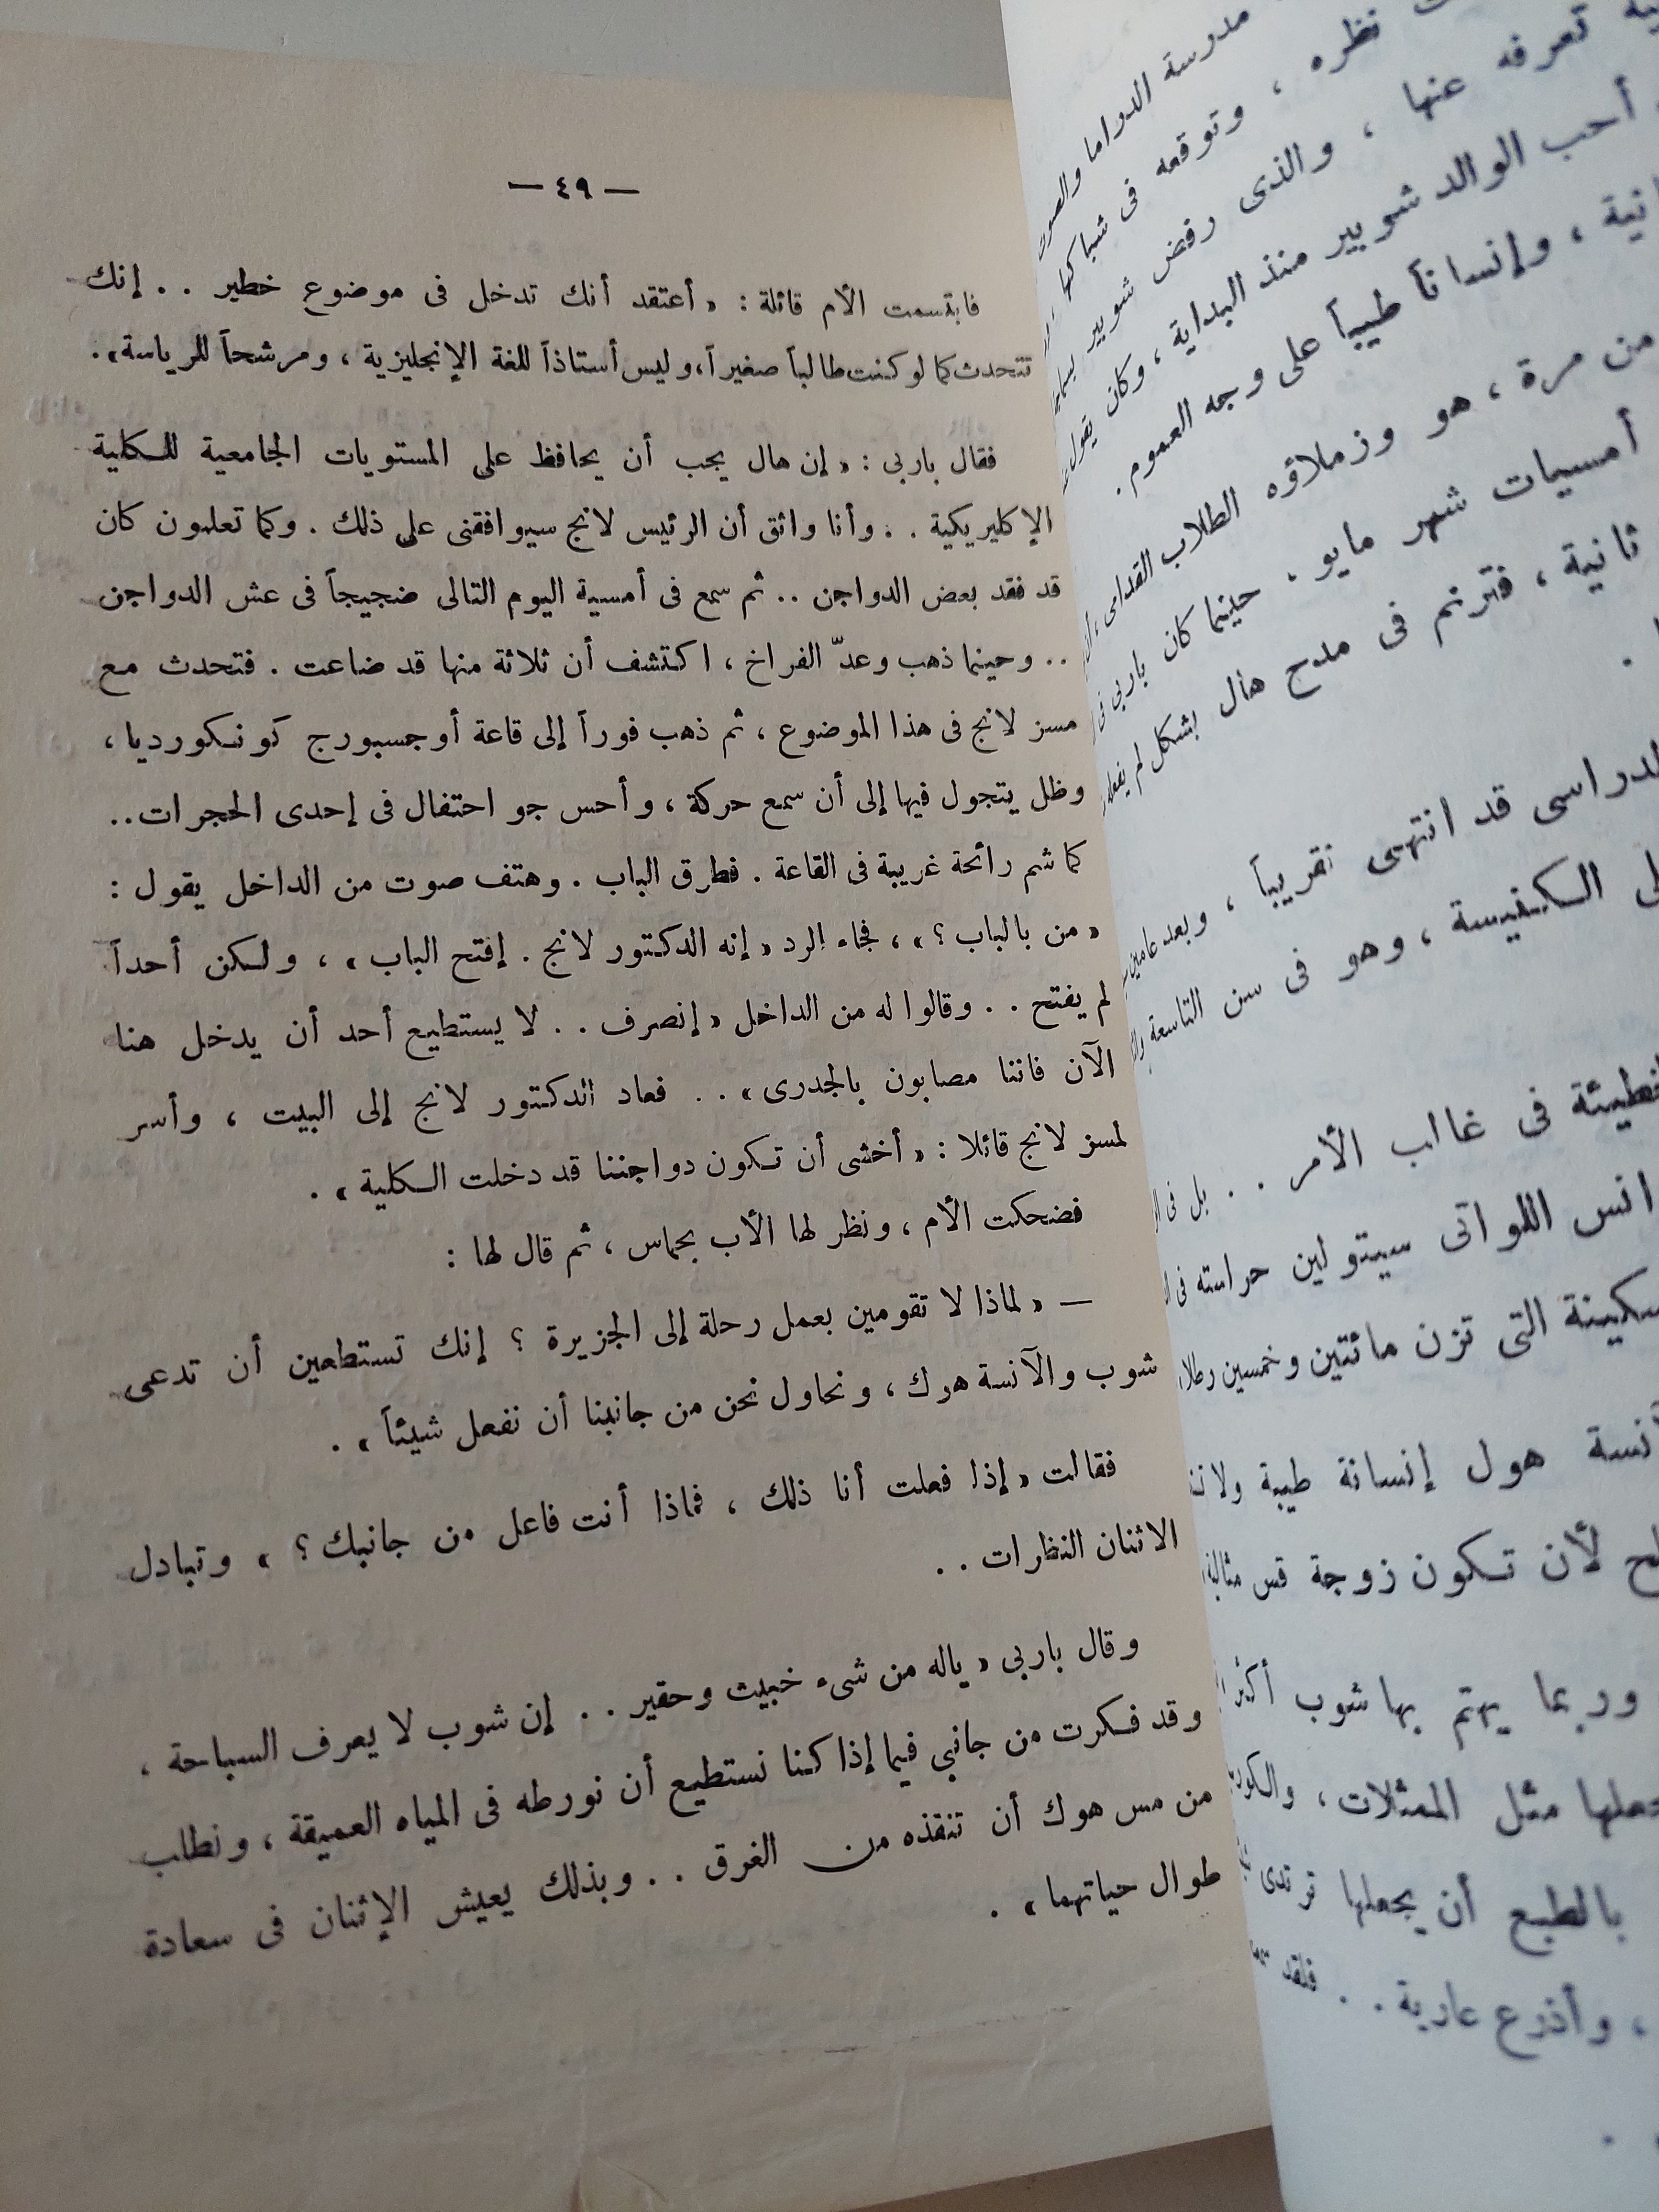 — ٤٩ —
فابتسمت الأم قائلة : « أعتقد أنك تدخل فى موضوع خطير . . إنك
تتحدث كما لو كنت طالباً صغيراً، وليس أستاذاً للغة الإنجليزية ، ومرشحاً للرياسة » .
فقال باربى : « إن هال يجب أن يحافظ على المستويات الجامعية للكلية
الإكليريكية . . وأنا واثق أن الرئيس لانج سيوافقنى على ذلك . وكما تعلمون كان
قد فقد بعض الدواجن . . ثم سمع فى أمسية اليوم التالى ضجيجاً فى عش الدواجن
. . وحينما ذهب وعدّ الفراخ ، اكتشف أن ثلاثة منها قد ضاعت . فتحدث مع
مسز لانج فى هذا الموضوع ، ثم ذهب فوراً إلى قاعة أوجسبورج كونكورديا ،
وظل يتجول فيها إلى أن سمع حركة ، وأحس جو احتفال فى إحدى الحجرات . .
كما شم رائحة غريبة فى القاعة . فطرق الباب . وهتف صوت من الداخل يقول :
« من بالباب ؟ » ، فجاء الرد « إنه الدكتور لانج . إفتح الباب » ، ولكن أحداً
لم يفتح . . وقالوا له من الداخل « إنصرف . . لا يستطيع أحد أن يدخل هنا
الآن فاننا مصابون بالجدرى » . . فعاد الدكتور لانج إلى البيت ، وأسر
لمسز لانج قائلا : « أخشى أن تكون دواجننا قد دخلت الكلية » .
فضحكت الأم ، ونظر لها الأب بحماس ، ثم قال لها :
— « لماذا لا تقومين بعمل رحلة إلى الجزيرة ؟ إنك تستطعين أن تدعى
شوب والآنسة هوك ، ونحاول نحن من جانبنا أن نفعل شيئاً » .
فقالت « إذا فعلت أنا ذلك ، فماذا أنت فاعل من جانبك ؟ » وتبادل
الاثنان النظرات . .
وقال باربى « ياله من شىء خبيث وحقير . . إن شوب لا يعرف السباحة ،
وقد فكرت من جانبي فيما إذا كنا نستطيع أن نورطه فى المياه العميقة ، ونطلب
من مس هوك أن تنقذه من الغرق . . وبذلك يعيش الإثنان فى سعادة
طوال حياتهما » .
مدرسة الدراما والصوت
نظره ، وتوقعه فى شباكها
تعرفه عنها ، والذى رفض شوبير
أحب الوالد شوبير منذ البداية ، وكان يقول
، وإنساناً طيباً على وجه العموم .
من مرة ، هو وزملاؤه الطلاب القدامى
أمسيات شهر مايو . حينما كان باربى فى
ثانية ، فترنم فى مدح هال بشكل لم يفعله
قد انتهى تقريباً ، وبعد عامين
الكنيسة ، وهو فى سن التاسعة
فى غالب الأمر . . بل فى
اللواتى سيتولين حراسته فى
التى تزن مائتين وخمسين رطلا
هول إنسانة طيبة
لأن تكون زوجة قس مثالية
وربما يهتم بها شوب أكثر
مثل الممثلات ،
بالطبع أن يجعلها ترتدى
، وأذرع عارية . . فلقد